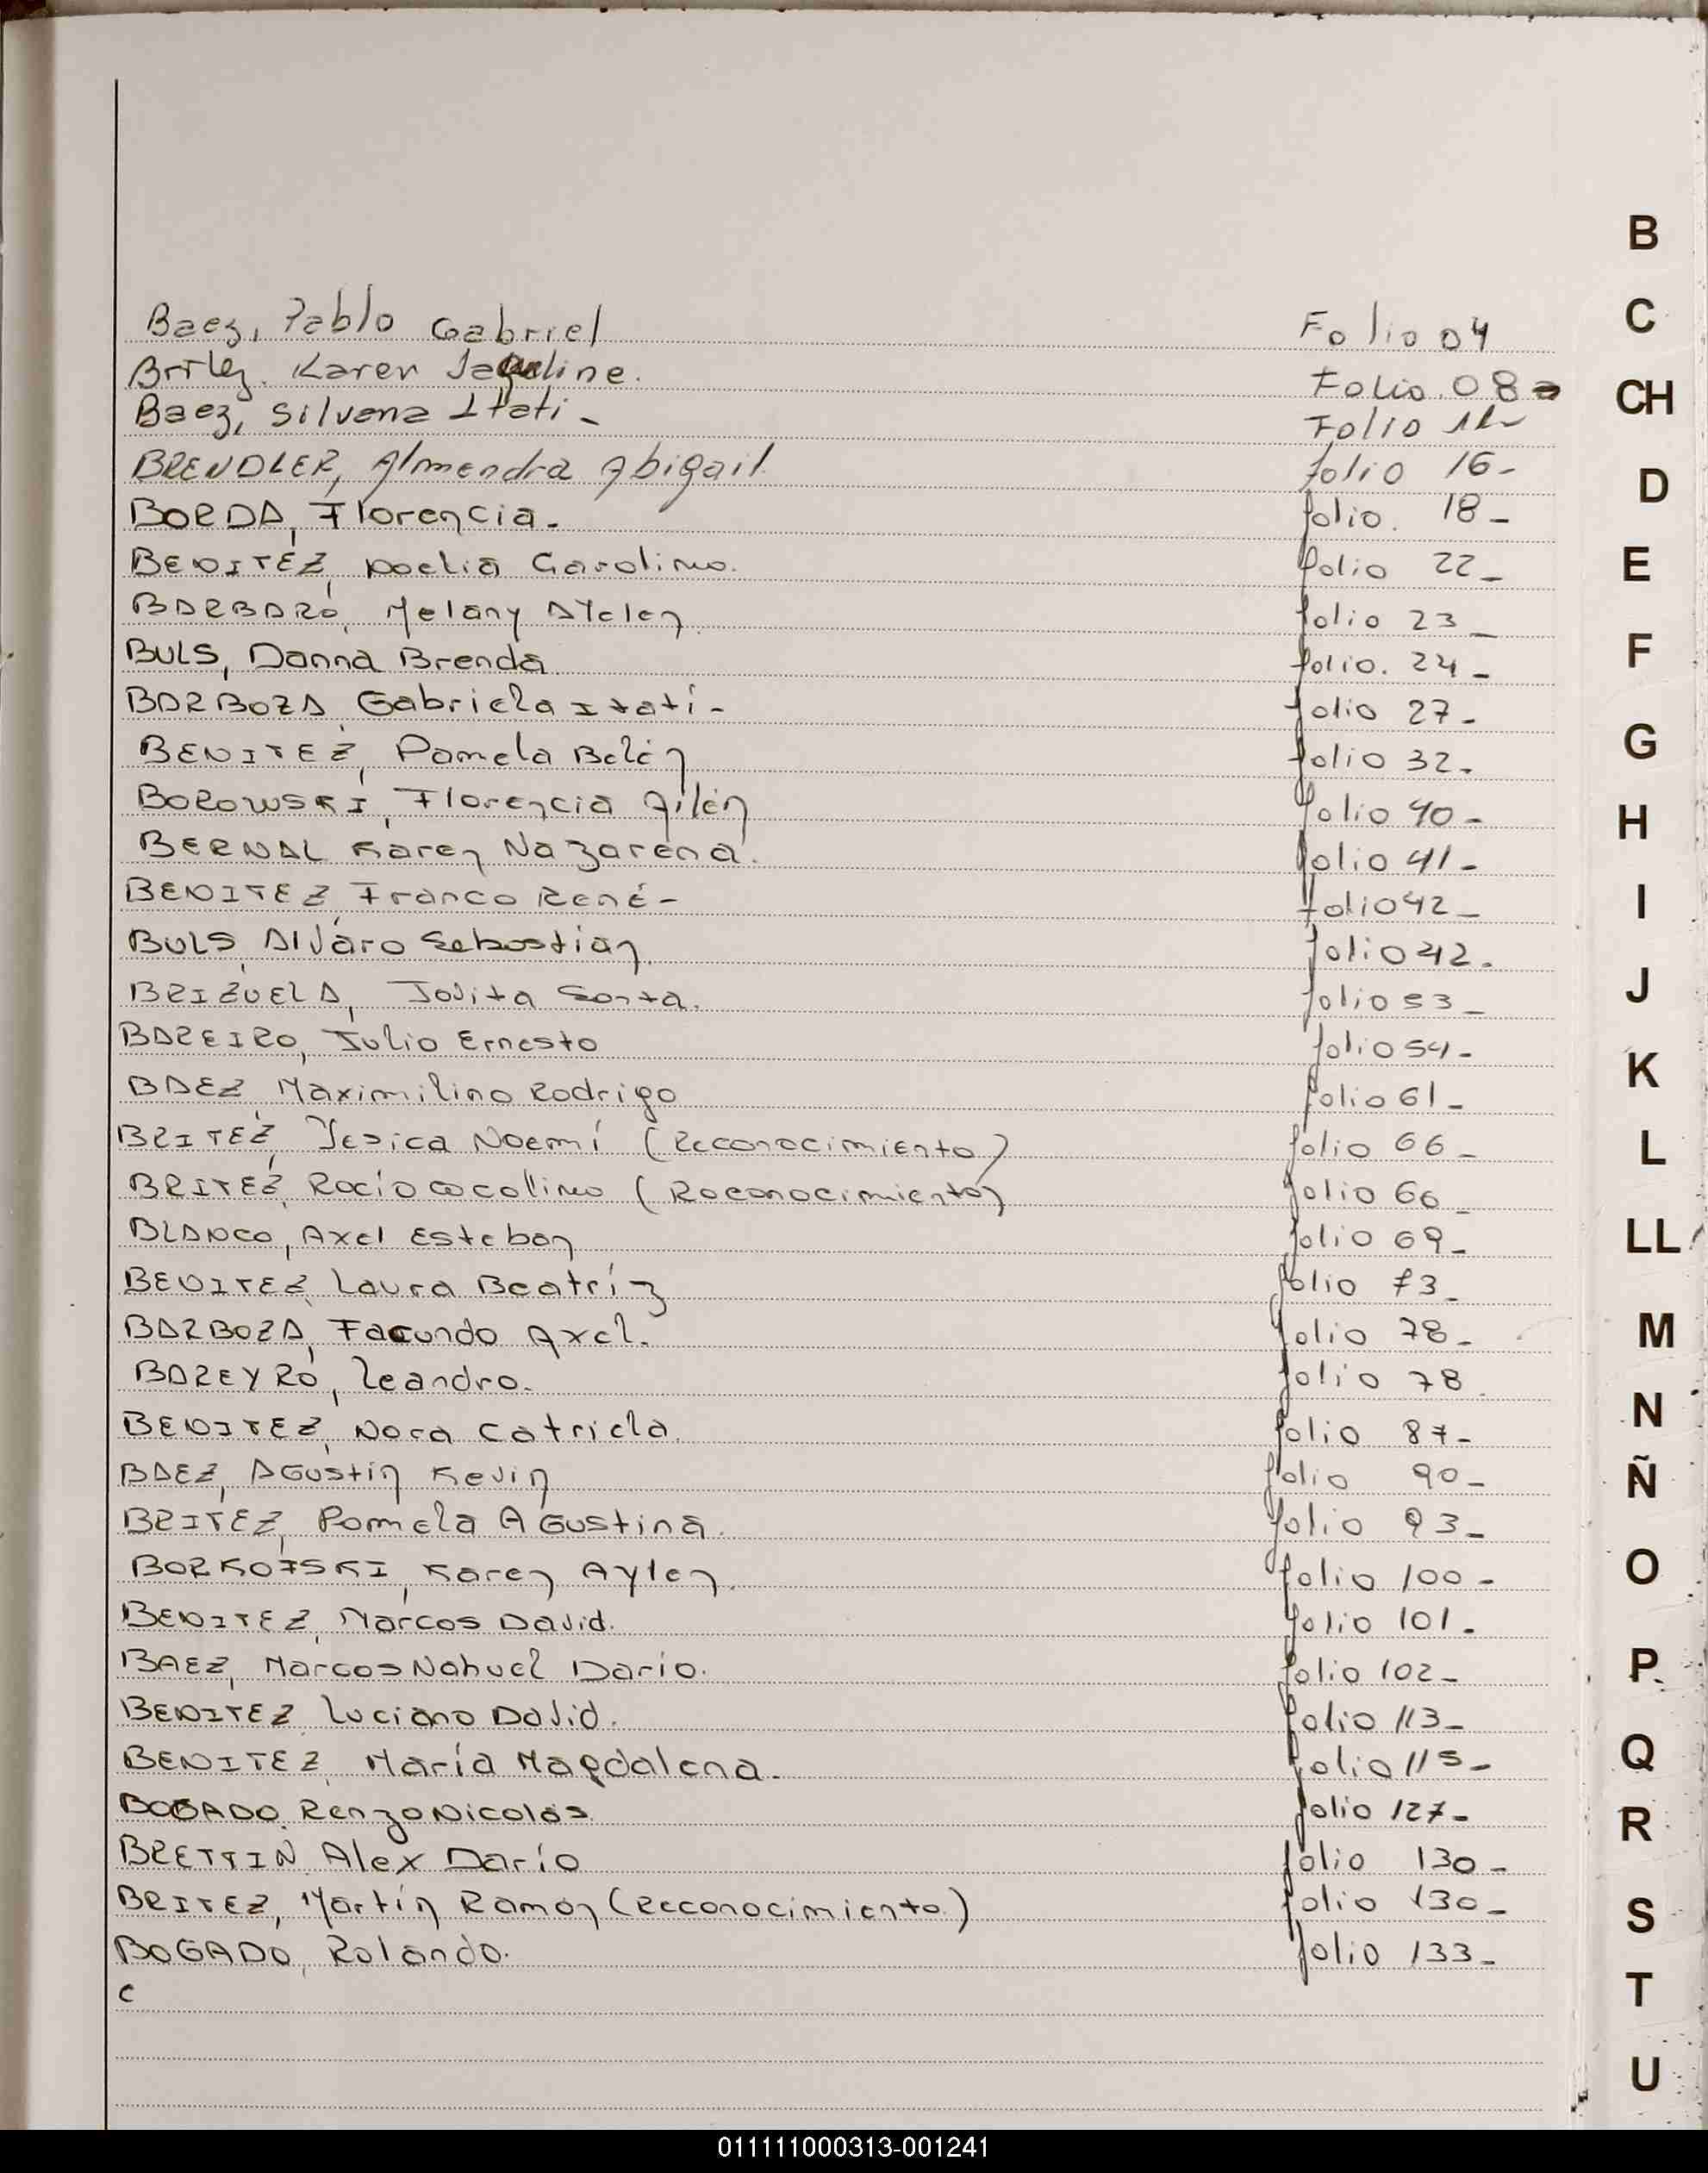 Baez, Pablo Gabriel Folio 04
Britez. Karen Jaqueline. Folio. 08-
Baez, Silvana Itati - Folio 11-
BRENDLER, Almendra Abigail folio 16-
BORDA, Florencia. folio. 18-
BENITEZ, Noelia Carolina. folio 22-
BARBARO, Melany Aylen. folio 23-
BULS, Danna Brenda folio. 24-
BARBOZA, Gabriela Itatí- folio 27-
BENITEZ, Pamela Belén folio 32.
BOROWSKI, Florencia Ailén folio 40-
BERNAL Karen Nazarena. folio 41-
BENITEZ, Franco René- folio 42-
BULS, Alvaro Sebastián. folio 42.
BRIZUELA, Jovita folio 53-
BAREIRO, Julio Ernesto folio 54-
BAEZ, Maximilino Rodrigo folio 61-
BRITEZ, Yesica Noemí (Reconocimiento) folio 66-
BRITEZ, Rocío (Reconocimiento) folio 66-
BLANCO, Axel Esteban folio 69-
BENITEZ, Laura Beatríz folio 73-
BARBOZA, Facundo Axel. folio 78-
BAREYRO, Leandro. folio 78.
BENITEZ, Nora Catriela. folio 87-
BAEZ, Agustín Kevin folio 90-
BRITEZ, Pamela Agustina. folio 93-
BORKOFSKI, Karen Aylen. folio 100-
BENITEZ, Marcos David. folio 101.
BAEZ, Marcos Nahuel Dario. folio 102-
BENITEZ, Luciano David. folio 113-
BENITEZ, María Magdalena. folio 115-
BOGADO, Renzo Nicolás. folio 127-
BRETTIN, Alex Darío folio 130-
BRITEZ, Martín Ramón (Reconocimiento.) folio 130-
BOGADO, Rolando. folio 133-
c
B
C
CH
D
E
F
G
H
I
J
K
L
LL
M
N
Ñ
O
P
Q
R
S
T
U
011111000313-001241